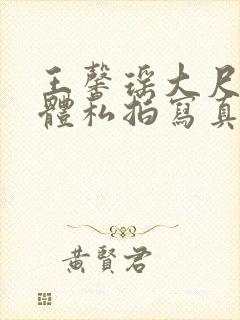 王馨瑶大尺
體私拍寫真
黃賢君